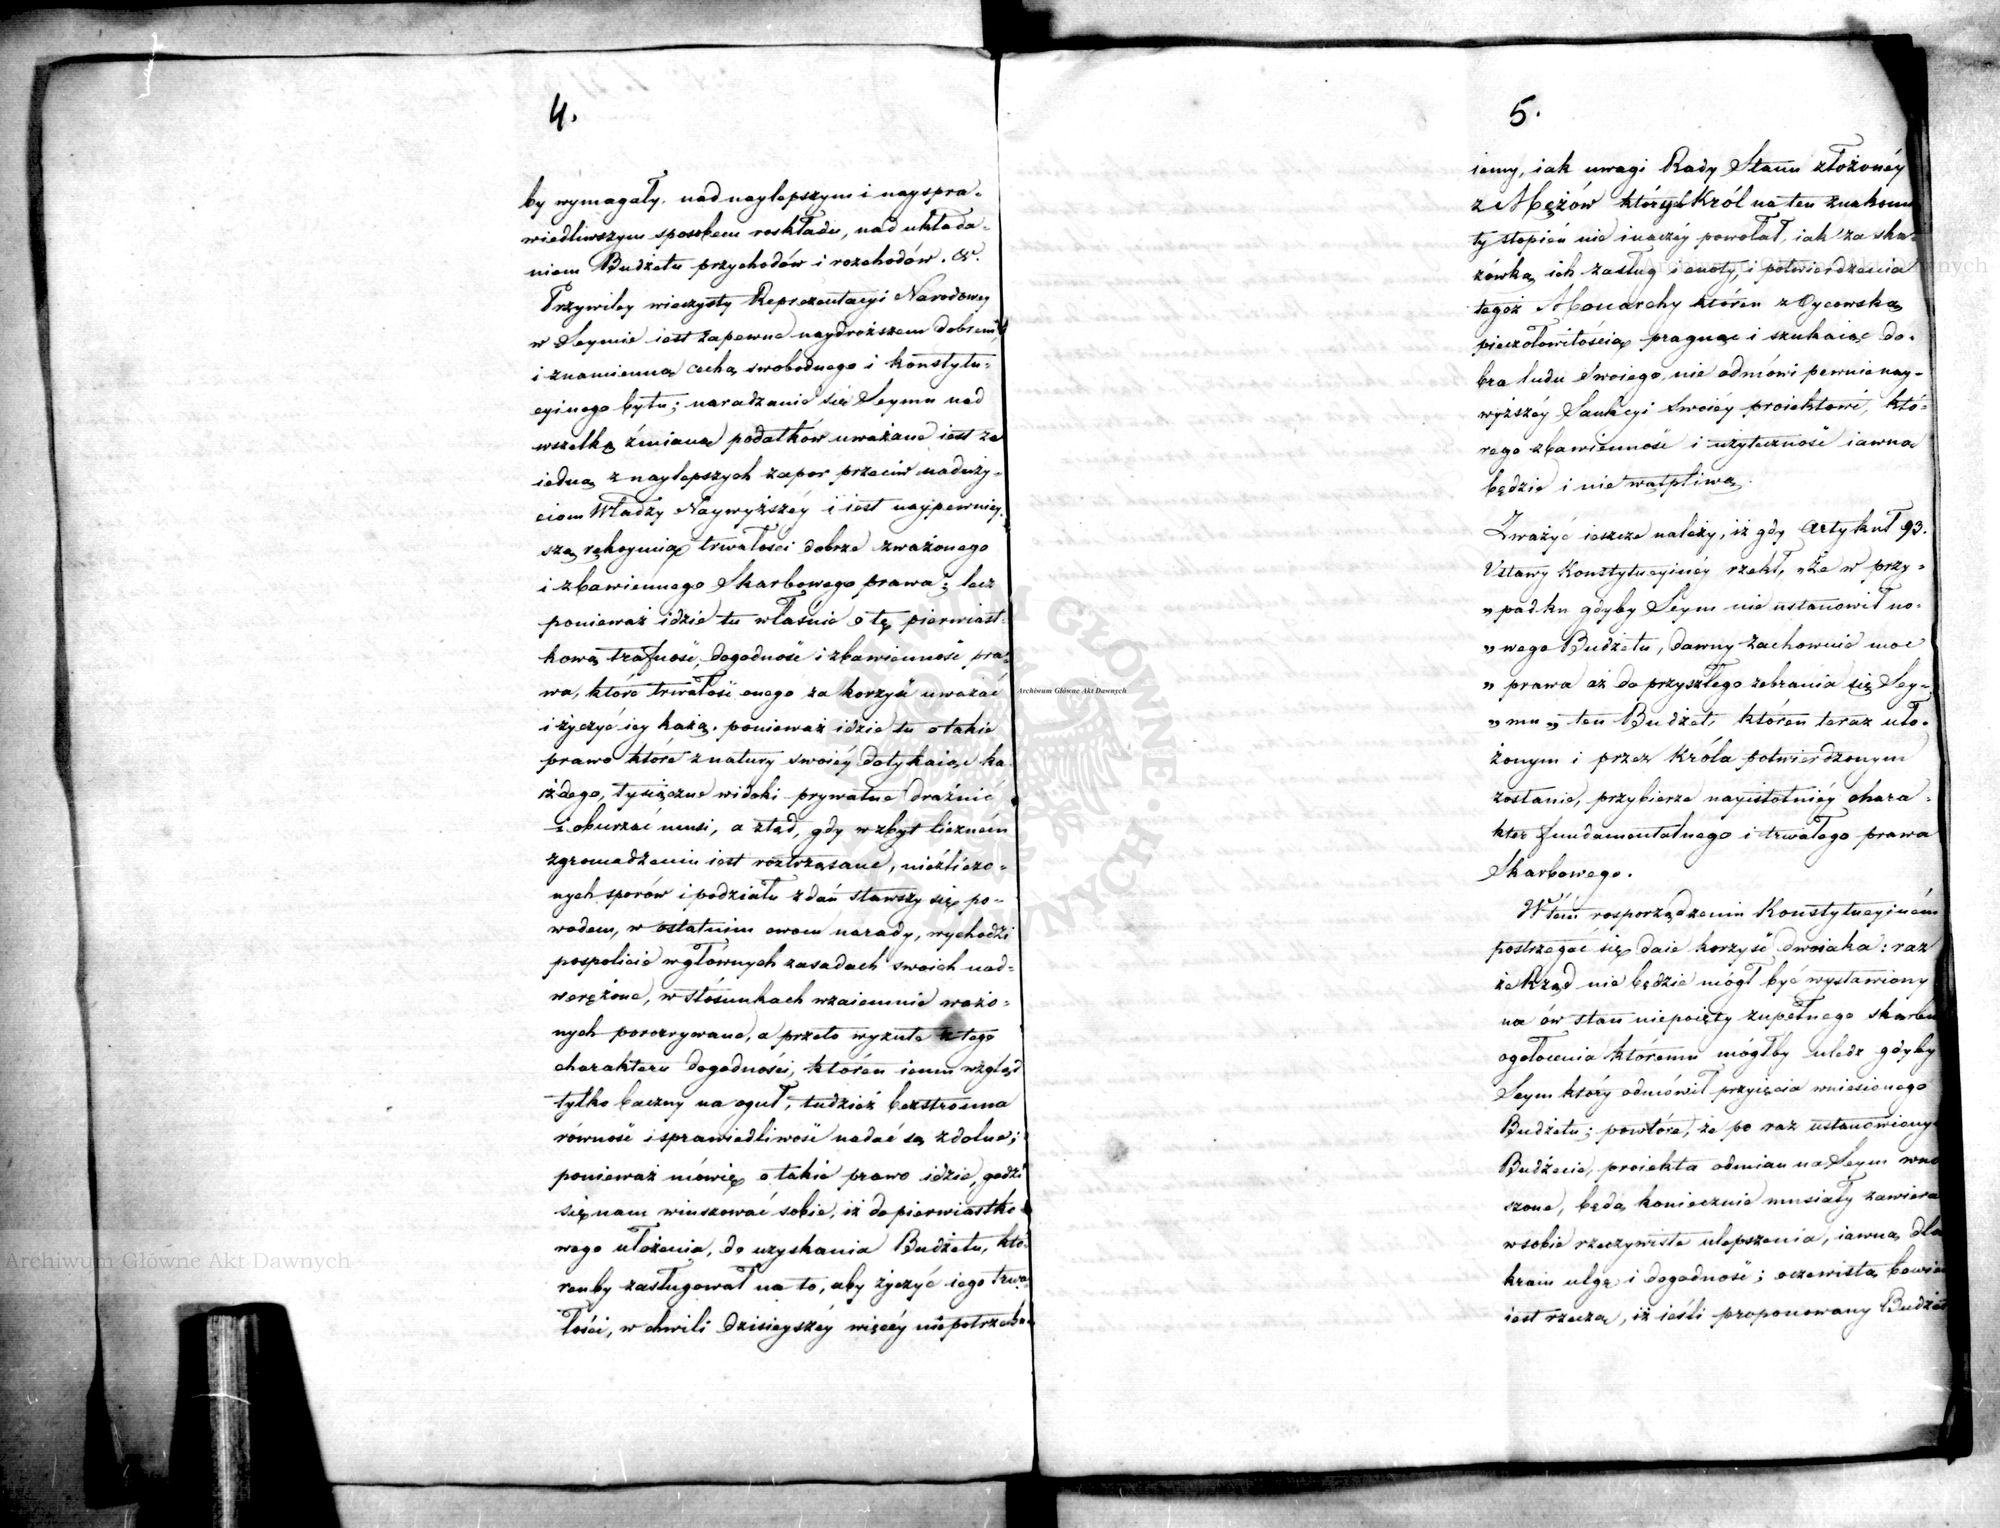 4.
by wymagały, nad naylepszym i nayspra-
wiedliwszym sposobem roskładu, nad układa-
niem Budżetu przychodów i rozchodów. &c.
Przywiley wieczysty Reprezentacyi Narodowey
w Seymie iest zapewne naydroższem dobrem,
i znamienną cechą swobodnego i konstytu-
cyinego bytu; naradzanie się Seymu nad
wszelką zmianą podatków uważane iest za
iedną z naylepszych zapor przeciw naduży-
ciom Władzy Naywyższéy i iest naypewniey-
szą rękoymią trwałości dobrze zważonego
i zbawiennego Skarbowego prawa; lecz
ponieważ idzie tu właśnie o tę pierwiast-
kową trafność, dogodność i zbawienność pra-
wa, które trwałość onego za korzyść uważać
i życzyć iey każą. ponieważ idzie tu o takie
prawo które z natury swoiéy dotykaiąc ka
żdego, tysiączne widoki prywatne draźnić
i oburzać musi, a ztąd, gdy w zbyt liczném
zgromadzeniu iest roztrząsane, niezliczo-
nych sporów i podziału zdań stawszy się po-
wodem, w ostatnim owocu narady, wychodzi
pospolicie w głównych zasadach swoich nad-
werężone, w stósunkach wzaiemnie ważo-
nych porozrywane, a przeto wyzute z tego
charakteru dogodności, któren iemu wzgląd
tylko baczny na oguł, tudzież bezstronna
równość i sprawiedliwość nadać są zdolne;
ponieważ mówię o takie prawo idzie, godzi
się nam winszować sobie, iż do pierwiastko
wego ułożenia, do uzyskania Budżetu, któ-
renby zasługował na to, aby życzyć iego trwa
łości, w chwili dzisieyszéy więcéy nie potrzebu-
5.
iemy, iak uwagi Rady Stanu złożonéy
z Mężów których Król na ten znakomi
ty stopień nie inaczéy powołał, iak za ska-
zówką ich zasług i cnoty, i potwierdzenia
tegoż Monarchy któren z Oycowską
pieczołowitością pragnąc i szukaiąc do-
bra ludu Swoiego, nie odmówi pewnie nay-
wyższéy Sankcyi Swoiéy proiektowi, któ-
rego zbawienność i użyteczność iawną
będzie i nie wątpliwą.
Zważyć ieszcze należy, iż gdy Artykuł 93.
Ustawy Konstytucyinéy rzekł, „Że w przy-
„padku gdyby Seym nie ustanowił no-
„wego Budżetu, dawny zachownie moc
„prawa aż do przyszłego zebrania się Sey-
„mu„ ten Budżet, któren teraz uło-
żonym i przez Króla potwierdzonym
zostanie, przybierze nayistotniéy chara-
kter fundamentalnego i trwałego prawa
Skarbowego.
W tém rosporządzeniu Konstytucyiném
postrzegać się daie korzyść dwoiaka: raz
że Rząd nie będzie mógł być wystawiony
na ów stan niepoięty zupełnego skarbu
ogołocenia któremu mógłby uledz gdyby
Seym który odmówił przyięcia wniesionego
Budżetu; powtóre, że po raz ustanowiony
Budżecie, proiekta odmian na Seym wno
szone, będą koniecznie musiały zawiera
w sobie rzeczywiste ulepszenia, iawną dla
kraiu ulgę i dogodność; oczewistą bowie
iest rzeczą, iż ieśli proponowany Budżet
Archiwum Główne Akt Dawnych